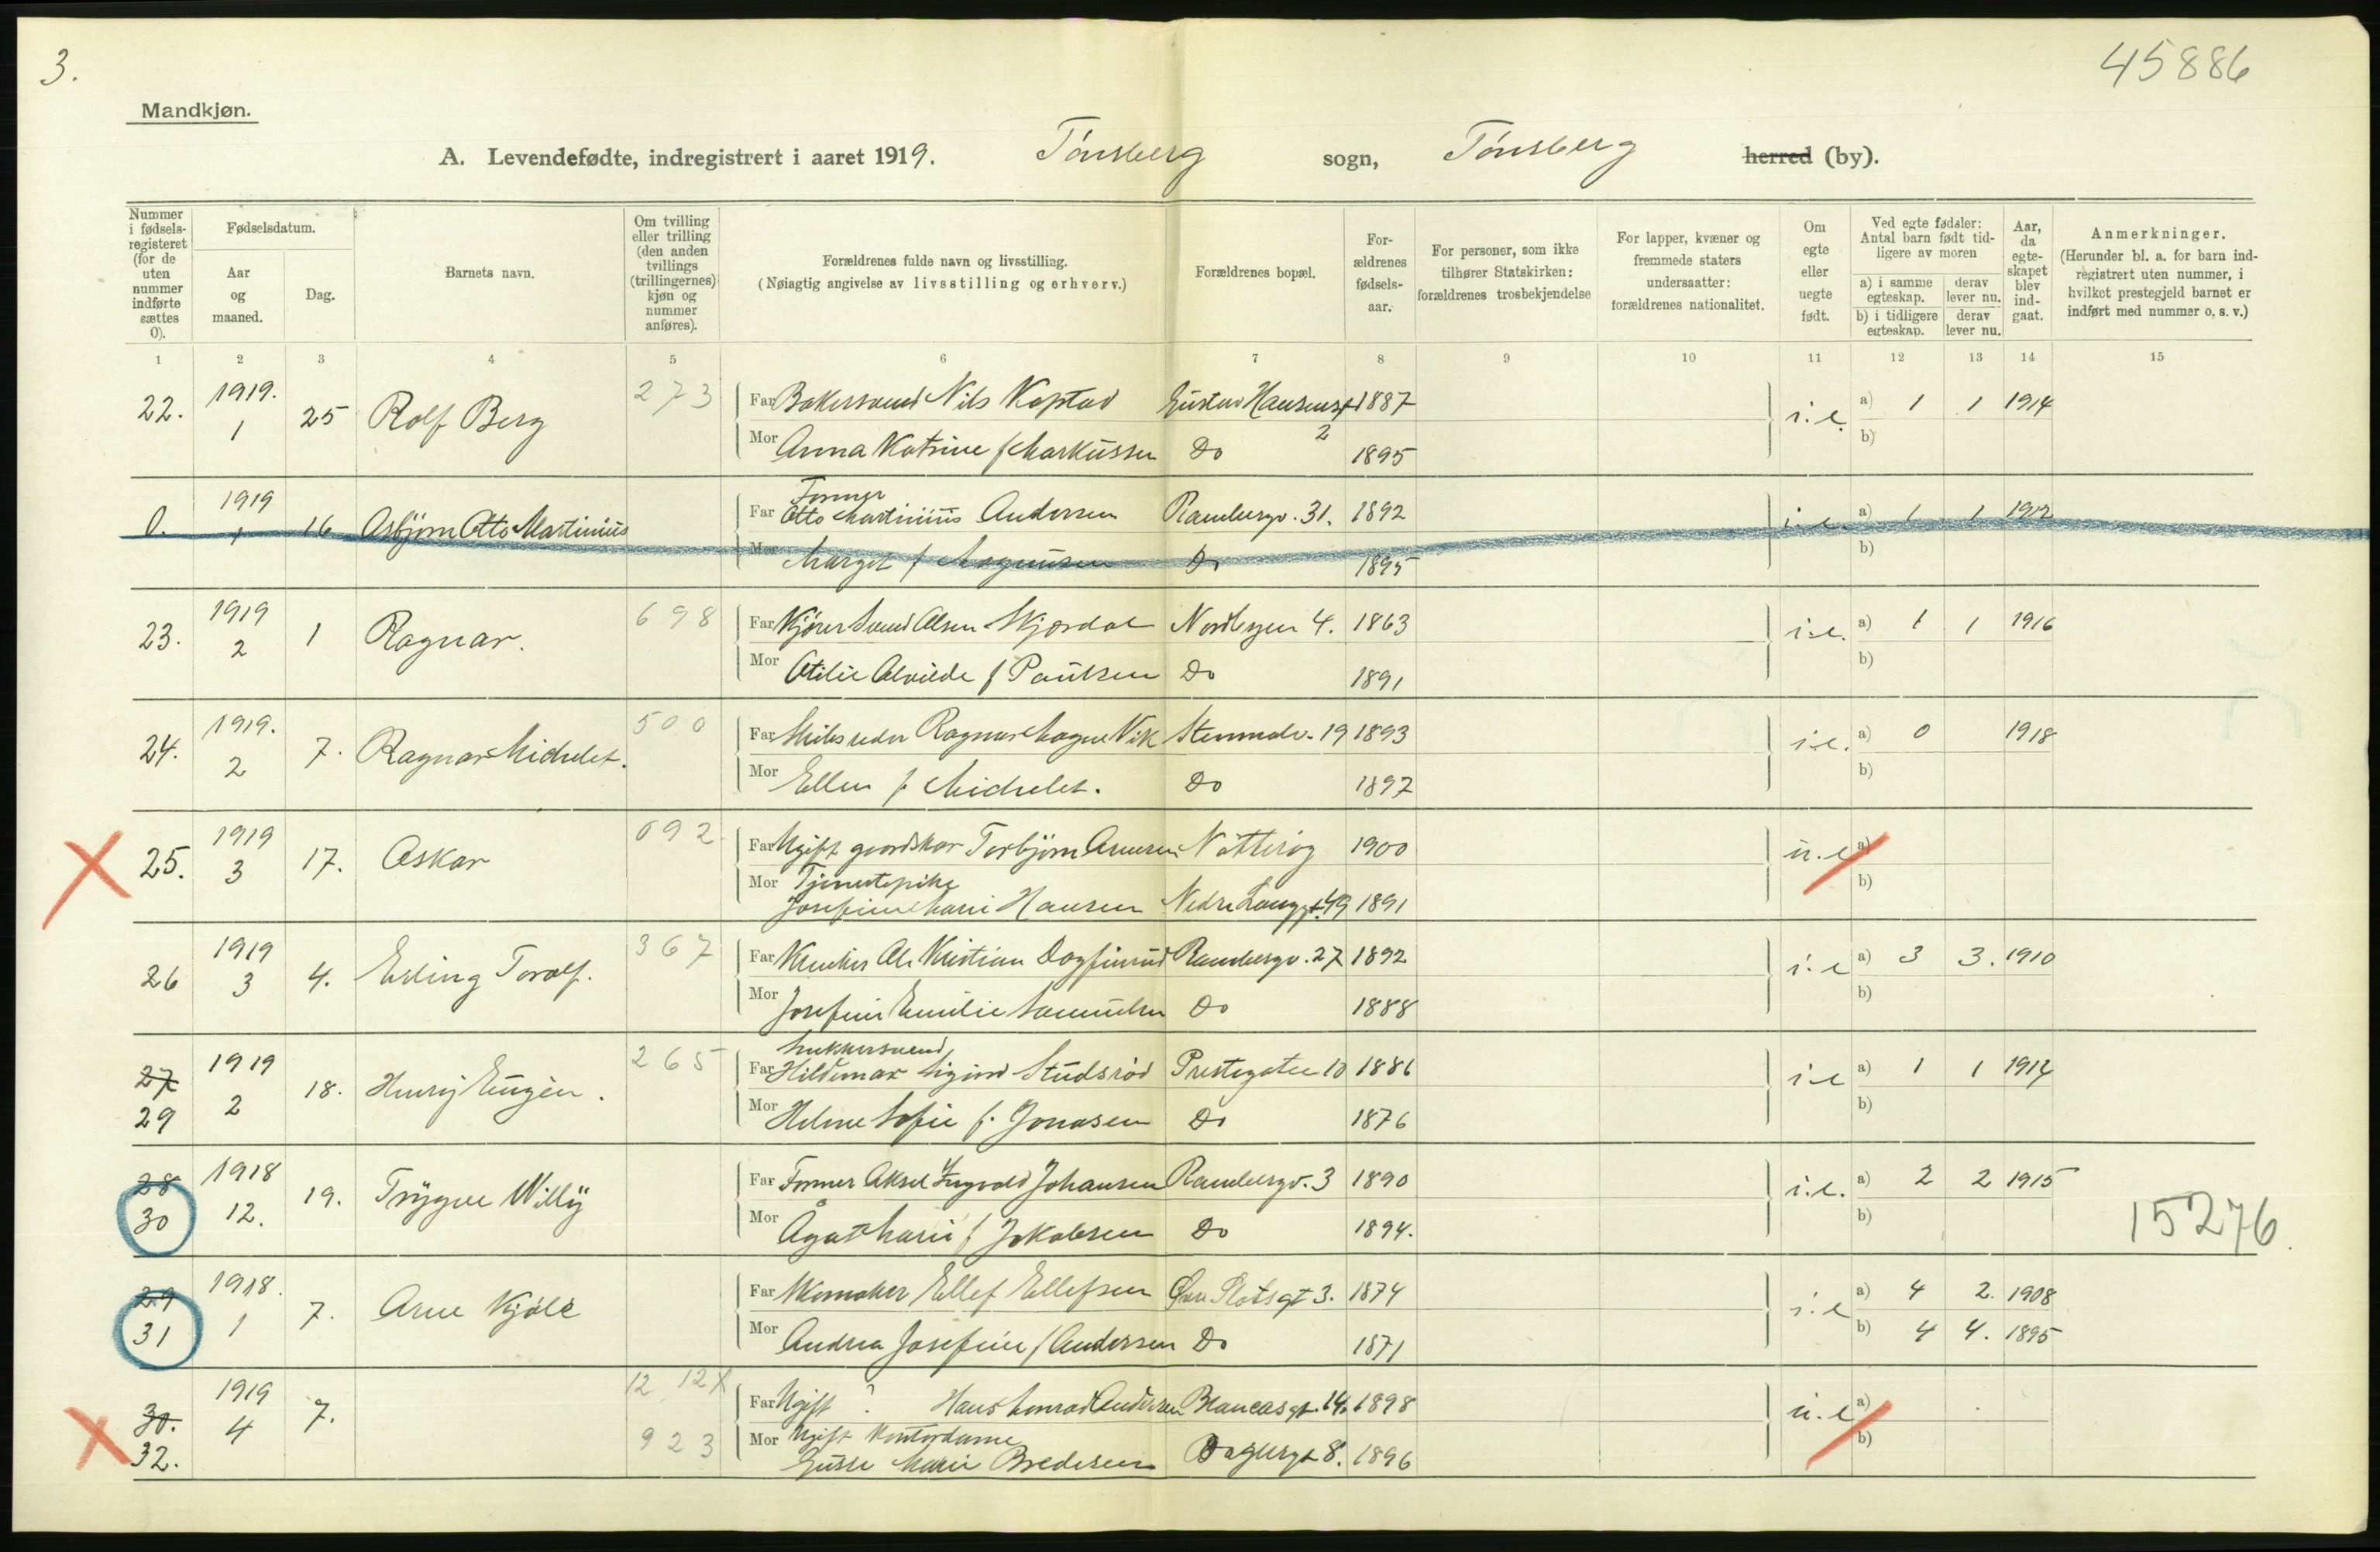 3.
45886
Mandkjøn.
A. Levendefødte, indregistrert i aaret 1919. Tønsberg sogn, Tønsberg herred (by).
Nummer i fødsels-registeret (for de uten nummer indførte sættes 0).
Fødselsdatum.
Aar og maaned.
Dag.
Barnets navn.
Om tvilling eller trilling (den anden tvillings (trillingernes) kjøn og nummer anføres).
Forældrenes fulde navn og livsstilling.
(Nøiagtig angivelse av livsstilling og erhverv.)
Forældrenes bopæl.
For-ældrenes fødsels-aar.
For personer, som ikke tilhører Statskirken: forældrenes trosbekjendelse
For lapper, kvæner og fremmede staters undersaatter: forældrenes nationalitet.
Om egte eller uegte født.
Ved egte fødsler: Antal barn født tid-ligere av moren
a) i samme egteskap. derav lever nu.
b) i tidligere egteskap. derav lever nu.
Aar, da egte-skapet blev ind-gaat.
Anmerkninger.
(Herunder bl. a. for barn ind-registrert uten nummer, i hvilket prestegjeld barnet er indført med nummer o. s. v.)
1 2 3 4 5 6 7 8 9 10 11 12 13 14 15
22. 1919. 1 25 Rolf Berg 273 Far Bakersvend Nils Kopstad Gustav Hansensgt 2 1887 i.e. a) 1 1 1914
Mor Anna Katrine f Markussen Do 1895 b)
0. 1919 1 16 Asbjørn Otto Martinius Far Former Otto Martinius Andersen Rambergv. 31. 1892 i.e. a) 1 1 1912
Mor Margit f Magnussen Do 1895 b)
23. 1919 2 1 Ragnar. 698 Far Kjører Svend Olsen Skjærdal Nordbyen 4. 1863 i.e. a) 1 1 1916
Mor Otilie Alvilde f Paulsen Do 1891 b)
24. 1919. 2 7. Ragnar Michelet. 500 Far Skibsreder Ragnar Magne Vik Stenmalv. 19 1893 i.e. a) 0 1918
Mor Ellen f. Michelet. Do 1897 b)
25. 1919 3 17. Oskar 692 Far Ugift gaardskar Torbjørn Arnesen Nøtterøy 1900 u.e a)
Mor Tjenestepike Josefine Marie Hansen Nedre Langgt. 49 1891 b)
26 1919 3 4. Erling Toralf. 367 Far Snekker Ole Kristian Dagfinrud Rambergv. 27 1892 i.e a) 3 3. 1910
Mor Josefine Emilie Samuelsen Do 1888 b)
27 29 1919 2 18. Henry Eugèn. 265 Far Snekkersvend Hildemar Sigurd Studsrød Prestegaten 10 1886 i.e a) 1 1 1914
Mor Helene Sofie f. Jonasen Do 1876 b)
28 30 1918 12. 19. Trygve Willy Far Former Aksel Yngvald Johansen Rambergv. 3 1890 i.e. a) 2 2 1915
Mor Ågat Marie f Jakobsen Do 1894. b)
15276
29 31 1918. 1 7. Arne Kjøle Far Skomaker Ellef Ellefsen Øvre Slotsgt 3. 1874 i.e a) 4 2. 1908
Mor Andrea Josefine f Andersen Do 1871 b) 4 4. 1895
30. 32. 1919 4 7. 12 12X Far Ugift ? Hans Konrad Andersen Blancasgt. 14. 1898 u.e a)
923 Mor Ugift Kontordame Gusse Marie Bredesen Dagsbrgt 8. 1896 b)